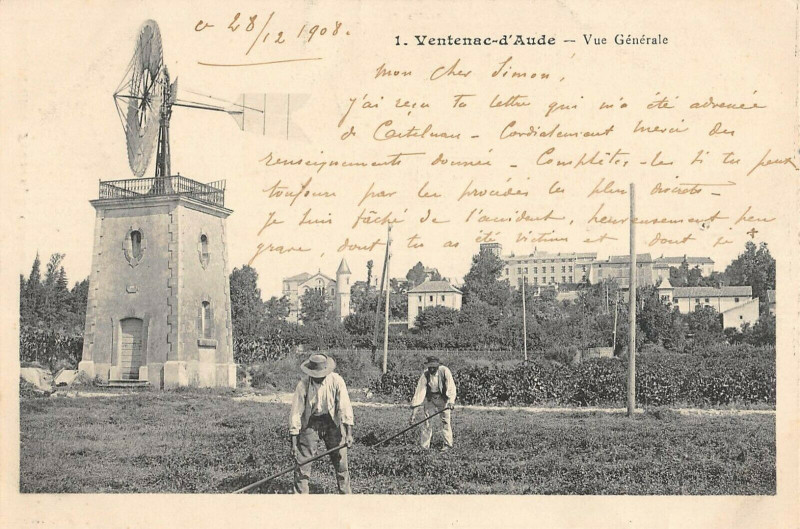 28/12 1908.
1. Ventenac-d'Aude — Vue Générale
Mon cher Simon,
J'ai reçu ta lettre qui m'a été adressée
de Castelnau - Cordialement merci des
renseignements donnés - Complétez-les si tu peux
toujours par les procédés les plus discrets -
Je suis fâché de l'accident, heureusement peu
grave, dont tu as été victime et dont je